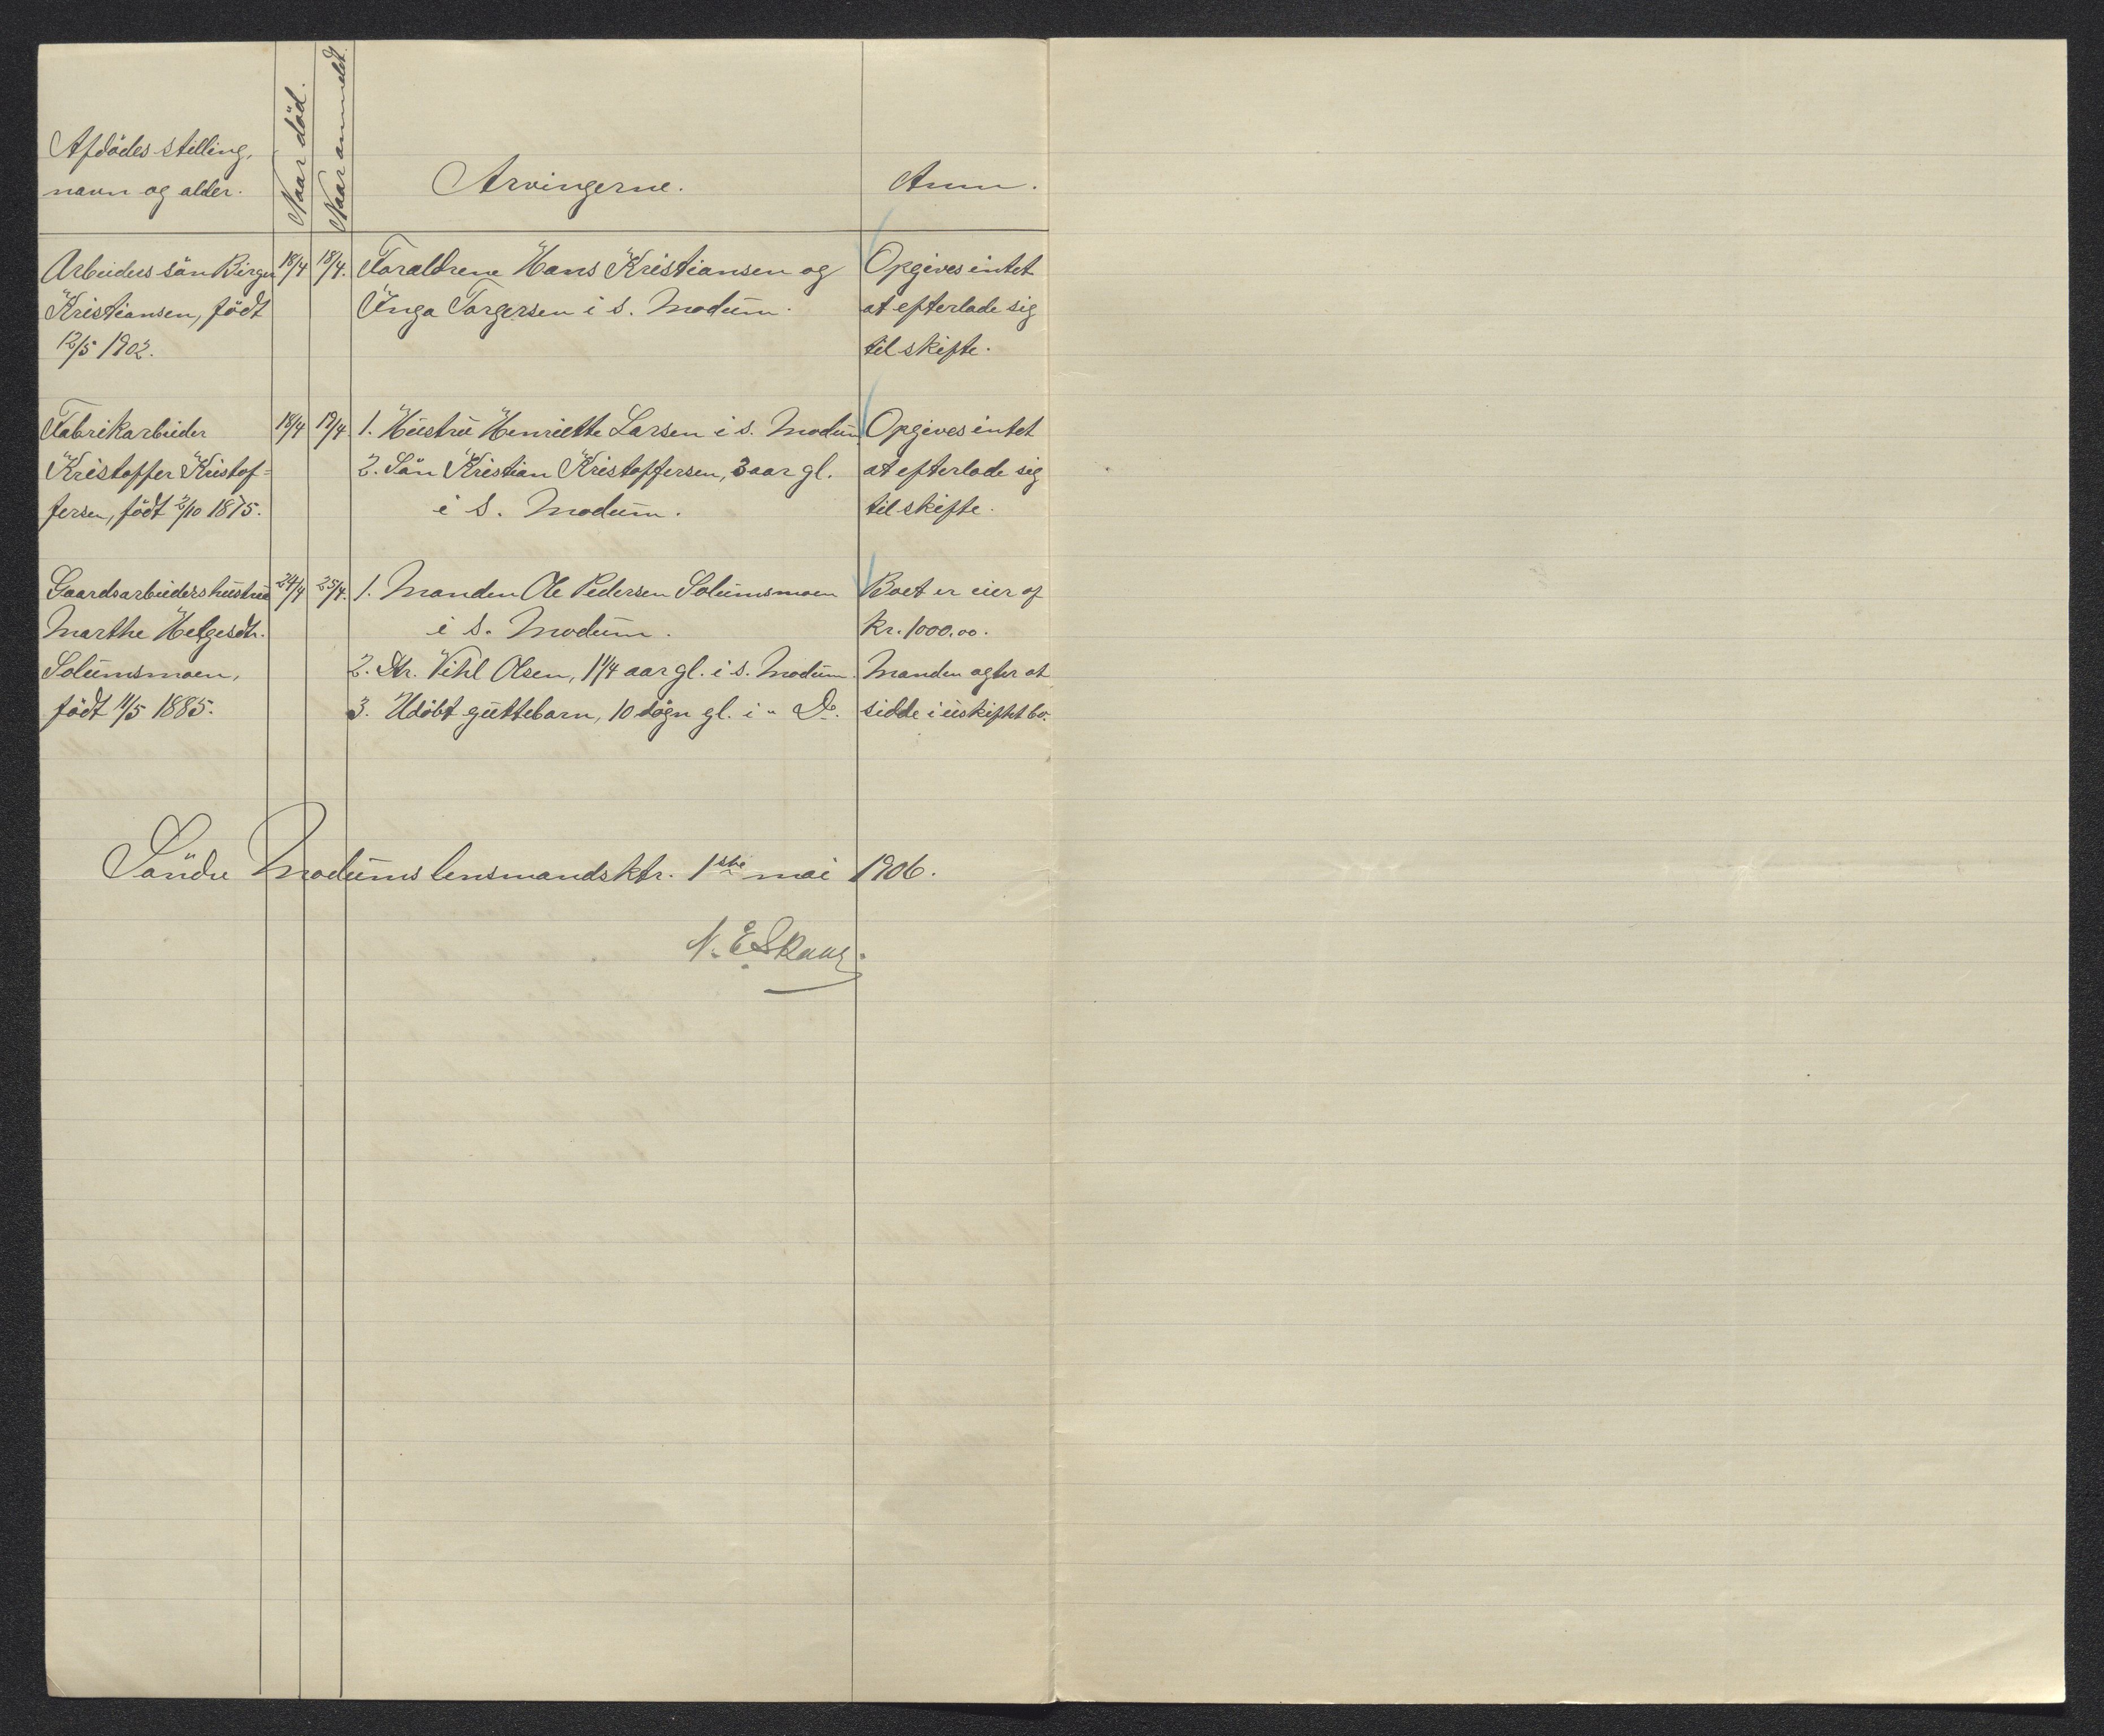 Afdödes stilling,
navn og alder.
Naar död.
Naar anmeldt.
Arvingerne.
Anm.
Arbeiders sön Birger
Kristiansen, födt
12/5 1902.
18/4
18/4.
Foraldrene Hans Kristiansen og
Inga Torgersen i s. Modum.
Opgives intet
at efterlade sig
til skifte.
Fabrikarbeider
Kristoffer Kristof=
fersen, födt 2/10 1875.
18/4
19/4
1. Hustru Henriette Larsen i s. Modum
2. Sön Kristian Kristoffersen, 3 aar gl.
i s. Modum.
Opgives intet
at efterlade sig
til skifte.
Gaardsarbeiders hustru
Marthe Helgesdtr.
Solumsmoen,
födt 11/5 1885.
24/4
25/4.
1. Manden Ole Pedersen Solumsmoen
i s. Modum.
2. Dtr. Vihl Olsen, 1 1/4 aar gl. i s. Modum.
3. Udöbt guttebarn, 10 dögn gl. i " Do.
Boet er eier af
kr. 1000.00.
Manden agter at
sidde i uskiftet bo.
Söndre Modums lensmandsktr. 1ste mai 1906.
N. E. Skaug.